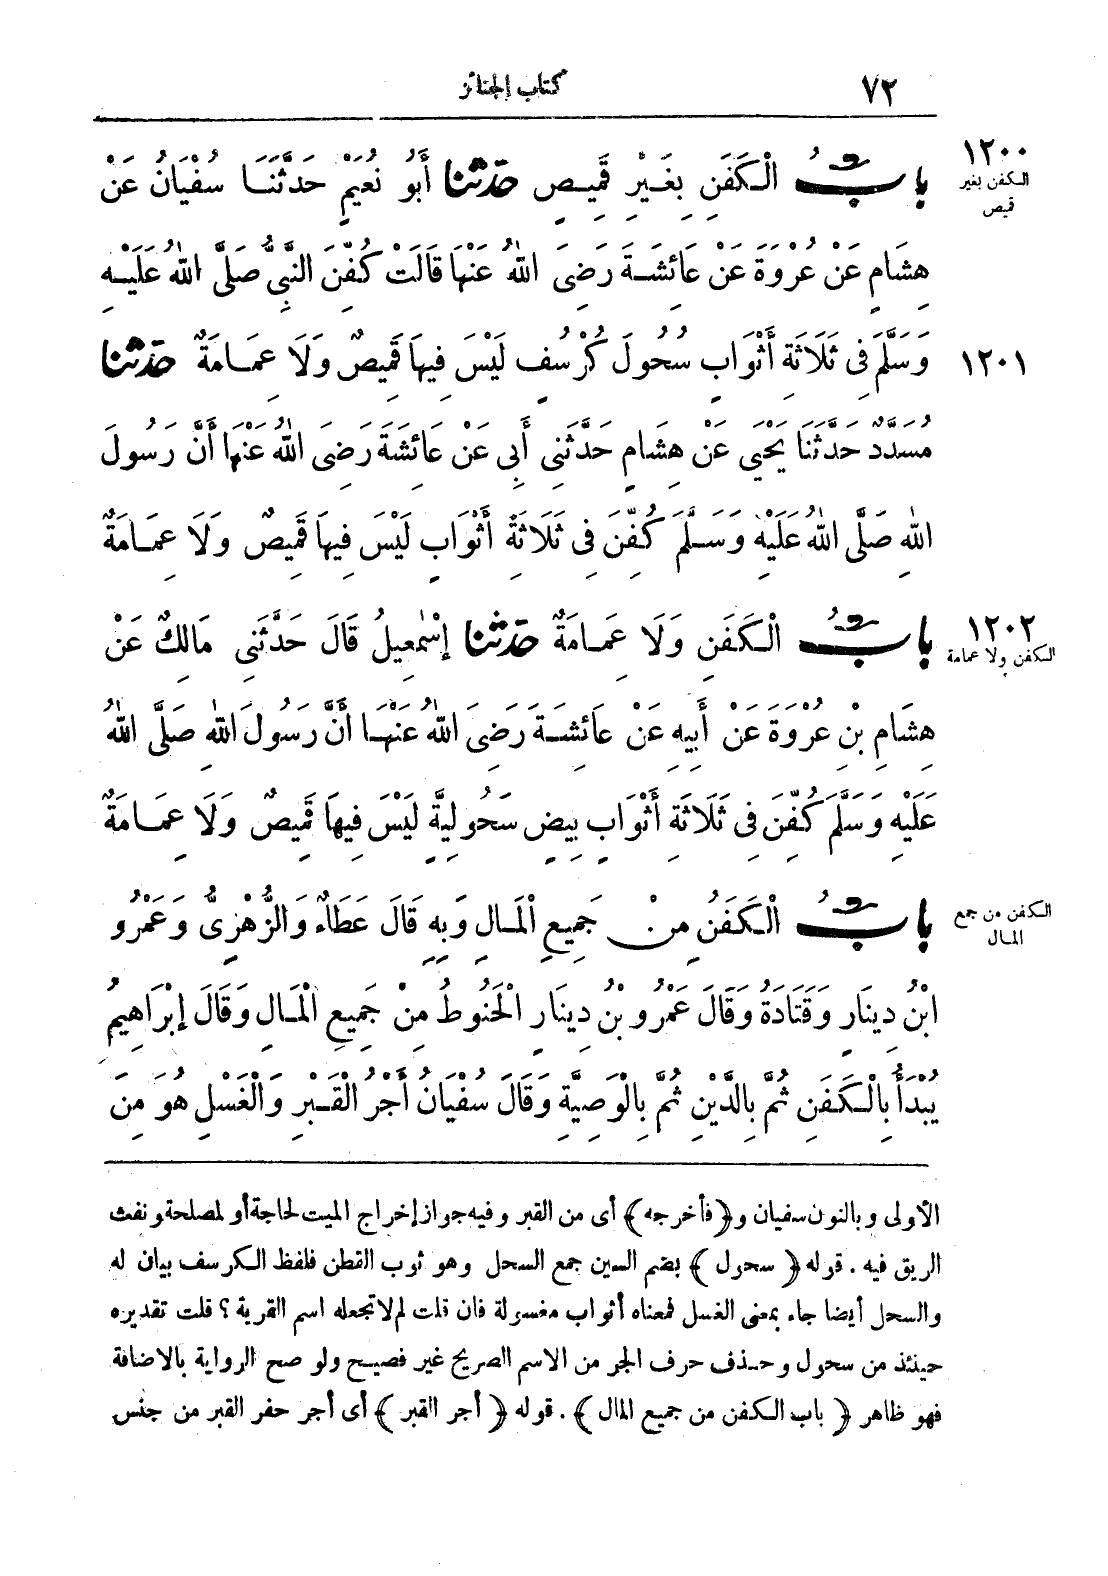 ٧٢ كتاب الجنائز
١٢٠٠ الكفن بغير قميص
بابُ الْكَفَنِ بِغَيْرِ قَمِيصٍ حدثنا أَبُو نُعَيْمٍ حَدَّثَنَا سُفْيَانُ عَنْ
هِشَامٍ عَنْ عُرْوَةَ عَنْ عَائِشَةَ رَضِيَ اللهُ عَنْهَا قَالَتْ كُفِّنَ النَّبِيُّ صَلَّى اللهُ عَلَيْهِ
١٢٠١ وَسَلَّمَ فِى ثَلَاثَةِ أَثْوَابِ سُحُولَ كُرْسُفٍ لَيْسَ فِيهَا قَمِيصٌ وَلَا عِمَامَةٌ حدثنا
مُسَدَّدٌ حَدَّثَنَا يَحْيَى عَنْ هِشَامٍ حَدَّثَنِى أَبِى عَنْ عَائِشَةَ رَضِىَ اللهُ عَنْهَا أَنَّ رَسُولَ
اللهِ صَلَّى اللهُ عَلَيْهِ وَسَلَّمَ كُفِّنَ فِى ثَلَاثَةِ أَثْوَابٍ لَيْسَ فِيهَا قَمِيصٌ وَلَا عِمَامَةٌ
١٢٠٢ الكفن ولا عمامة
بابُ الْكَفَنِ وَلَا عِمَامَةٌ حدثنا إِسْمٰعِيلُ قَالَ حَدَّثَنِى مَالِكٌ عَنْ
هِشَامِ بْنِ عُرْوَةَ عَنْ أَبِيهِ عَنْ عَائِشَةَ رَضِىَ اللهُ عَنْهَا أَنَّ رَسُولَ اللهِ صَلَّى اللهُ
عَلَيْهِ وَسَلَّمَ كُفِّنَ فِى ثَلَاثَةِ أَثْوَابٍ بِيضٍ سَحُولِيَّةٍ لَيْسَ فِيهَا قَمِيصٌ وَلَا عِمَامَةٌ
الكفن من جمع المال
بابُ الْكَفَنُ مِنْ جَمِيعِ الْمَالِ وَبِهِ قَالَ عَطَاءٌ وَالزُّهْرِىُّ وَعَمْرُو
ابْنُ دِينَارٍ وَقَتَادَةُ وَقَالَ عَمْرُو بْنُ دِينَارٍ الْحَنُوطُ مِنْ جَمِيعِ الْمَالِ وَقَالَ إِبْرَاهِيمُ
يُبْدَأُ بِالْكَفَنِ ثُمَّ بِالدَّيْنِ ثُمَّ بِالْوَصِيَّةِ وَقَالَ سُفْيَانُ أَجْرُ الْقَبْرِ وَالْغَسْلِ هُوَ مِنَ
الأولى وبالنون سفيان و﴿فأخرجه﴾ أى من القبر وفيه جواز إخراج الميت لحاجة أو لمصلحة ونفث
الريق فيه . قوله ﴿سحول﴾ بضم السين جمع السحل وهو ثوب القطن فلفظ الكرسف بيان له
والسحل أيضا جاء بمعنى الغسل فمعناه أثواب مغسولة فان قلت لم لا تجعله اسم القرية ؟ قلت تقديره
حينئذ من سحول وحذف حرف الجر من الاسم الصريح غير فصيح ولو صح الرواية بالاضافة
فهو ظاهر ﴿باب الكفن من جميع المال﴾ . قوله ﴿أجر القبر﴾ أى أجر حفر القبر من جنس